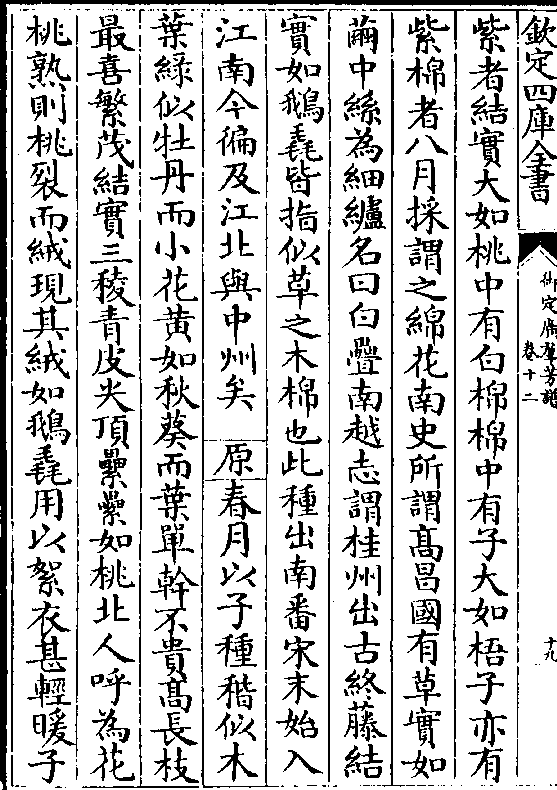 欽定四庫全書
御定廣羣芳譜
卷十二
十九
紫者結實大如桃中有白棉棉中有子大如梧子亦有
紫棉者八月採謂之綿花南史所謂高昌國有草實如
繭中絲為細纑名曰白疊南越志謂桂州出古終藤結
實如鵝毳皆指似草之木棉也此種出南番宋末始入
江南今徧及江北與中州矣 原春月以子種稭似木
葉綠似牡丹而小花黄如秋葵而葉單幹不貴高長枝
最喜繁茂結實三稜青皮尖頂纍纍如桃北人呼為花
桃熟則桃裂而絨現其絨如鵝毳用以絮衣甚輕暖子